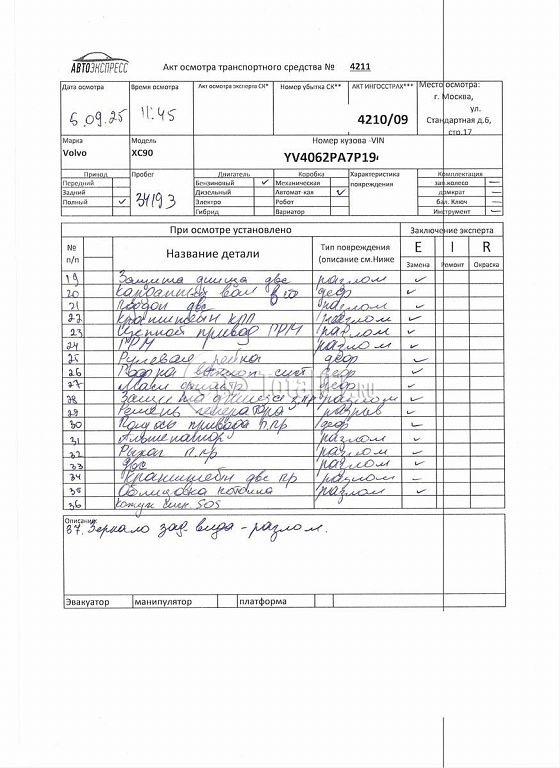 АВТОЭКСПРЕСС
Акт осмотра транспортного средства № 4211
Дата осмотра Время осмотра Акт осмотра эксперта СК* Номер убытка СК** АКТ ИНГОССТРАХ*** Место осмотра:
5.09.25 11:45 4210/09 г. Москва,
ул.
Стандартная д.6,
стр.17
Марка Модель Номер кузова -VIN
Volvo XC90 YV4062PA7P19
Привод Пробег Двигатель Коробка Характеристика Комплектация
Передний Бензиновый ✓ Механическая повреждения зап.колесо —
Задний 34193 Дизельный Автомат-кая ✓ домкрат —
Полный ✓ Электро Робот бал. Ключ —
Гибрид Вариатор Инструмент —
При осмотре установлено Заключение эксперта
№ Название детали Тип повреждения E I R
п/п (описание см.Ниже Замена Ремонт Окраска
19 Защита днища двс разлом ✓
20 Карданный вал деф ✓
21 Поддон двс разлом ✓
22 Кронштейн КПП разлом ✓
23 Цепной привод ГРМ разлом ✓
24 ГРМ разлом ✓
25 Рулевая рейка деф ✓
26 деф ✓
27 деф ✓
28 Защита днища з.пр разлом ✓
29 Ремень генератора разрыв ✓
30 Полуось привода п.пр деф ✓
31 разлом ✓
32 Рычаг п.пр разлом ✓
33 двс разлом ✓
34 Кронштейн двс пр разлом
35 Облицовка потолка разлом ✓
36 Кожух SOS
Описание:
37. Зеркало зад. вида - разлом.
Эвакуатор манипулятор платформа